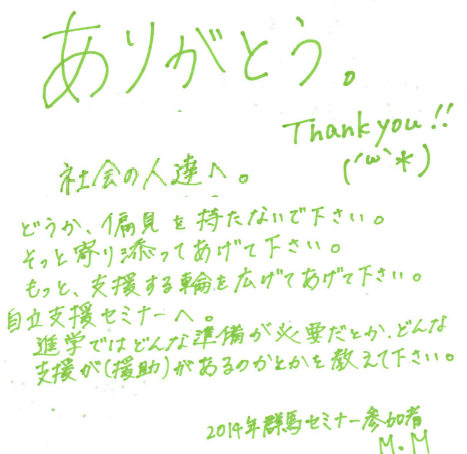 ありがとう。
Thank you!!
(´ω`*)
社会の人達へ。
どうか、偏見を持たないで下さい。
そっと寄り添ってあげて下さい。
もっと、支援する輪を広げてあげて下さい。
自立支援セミナーへ。
進学ではどんな準備が必要だとか、どんな
支援が(援助)があるのかとかを教えて下さい。
2014年群馬セミナー参加者
M.M